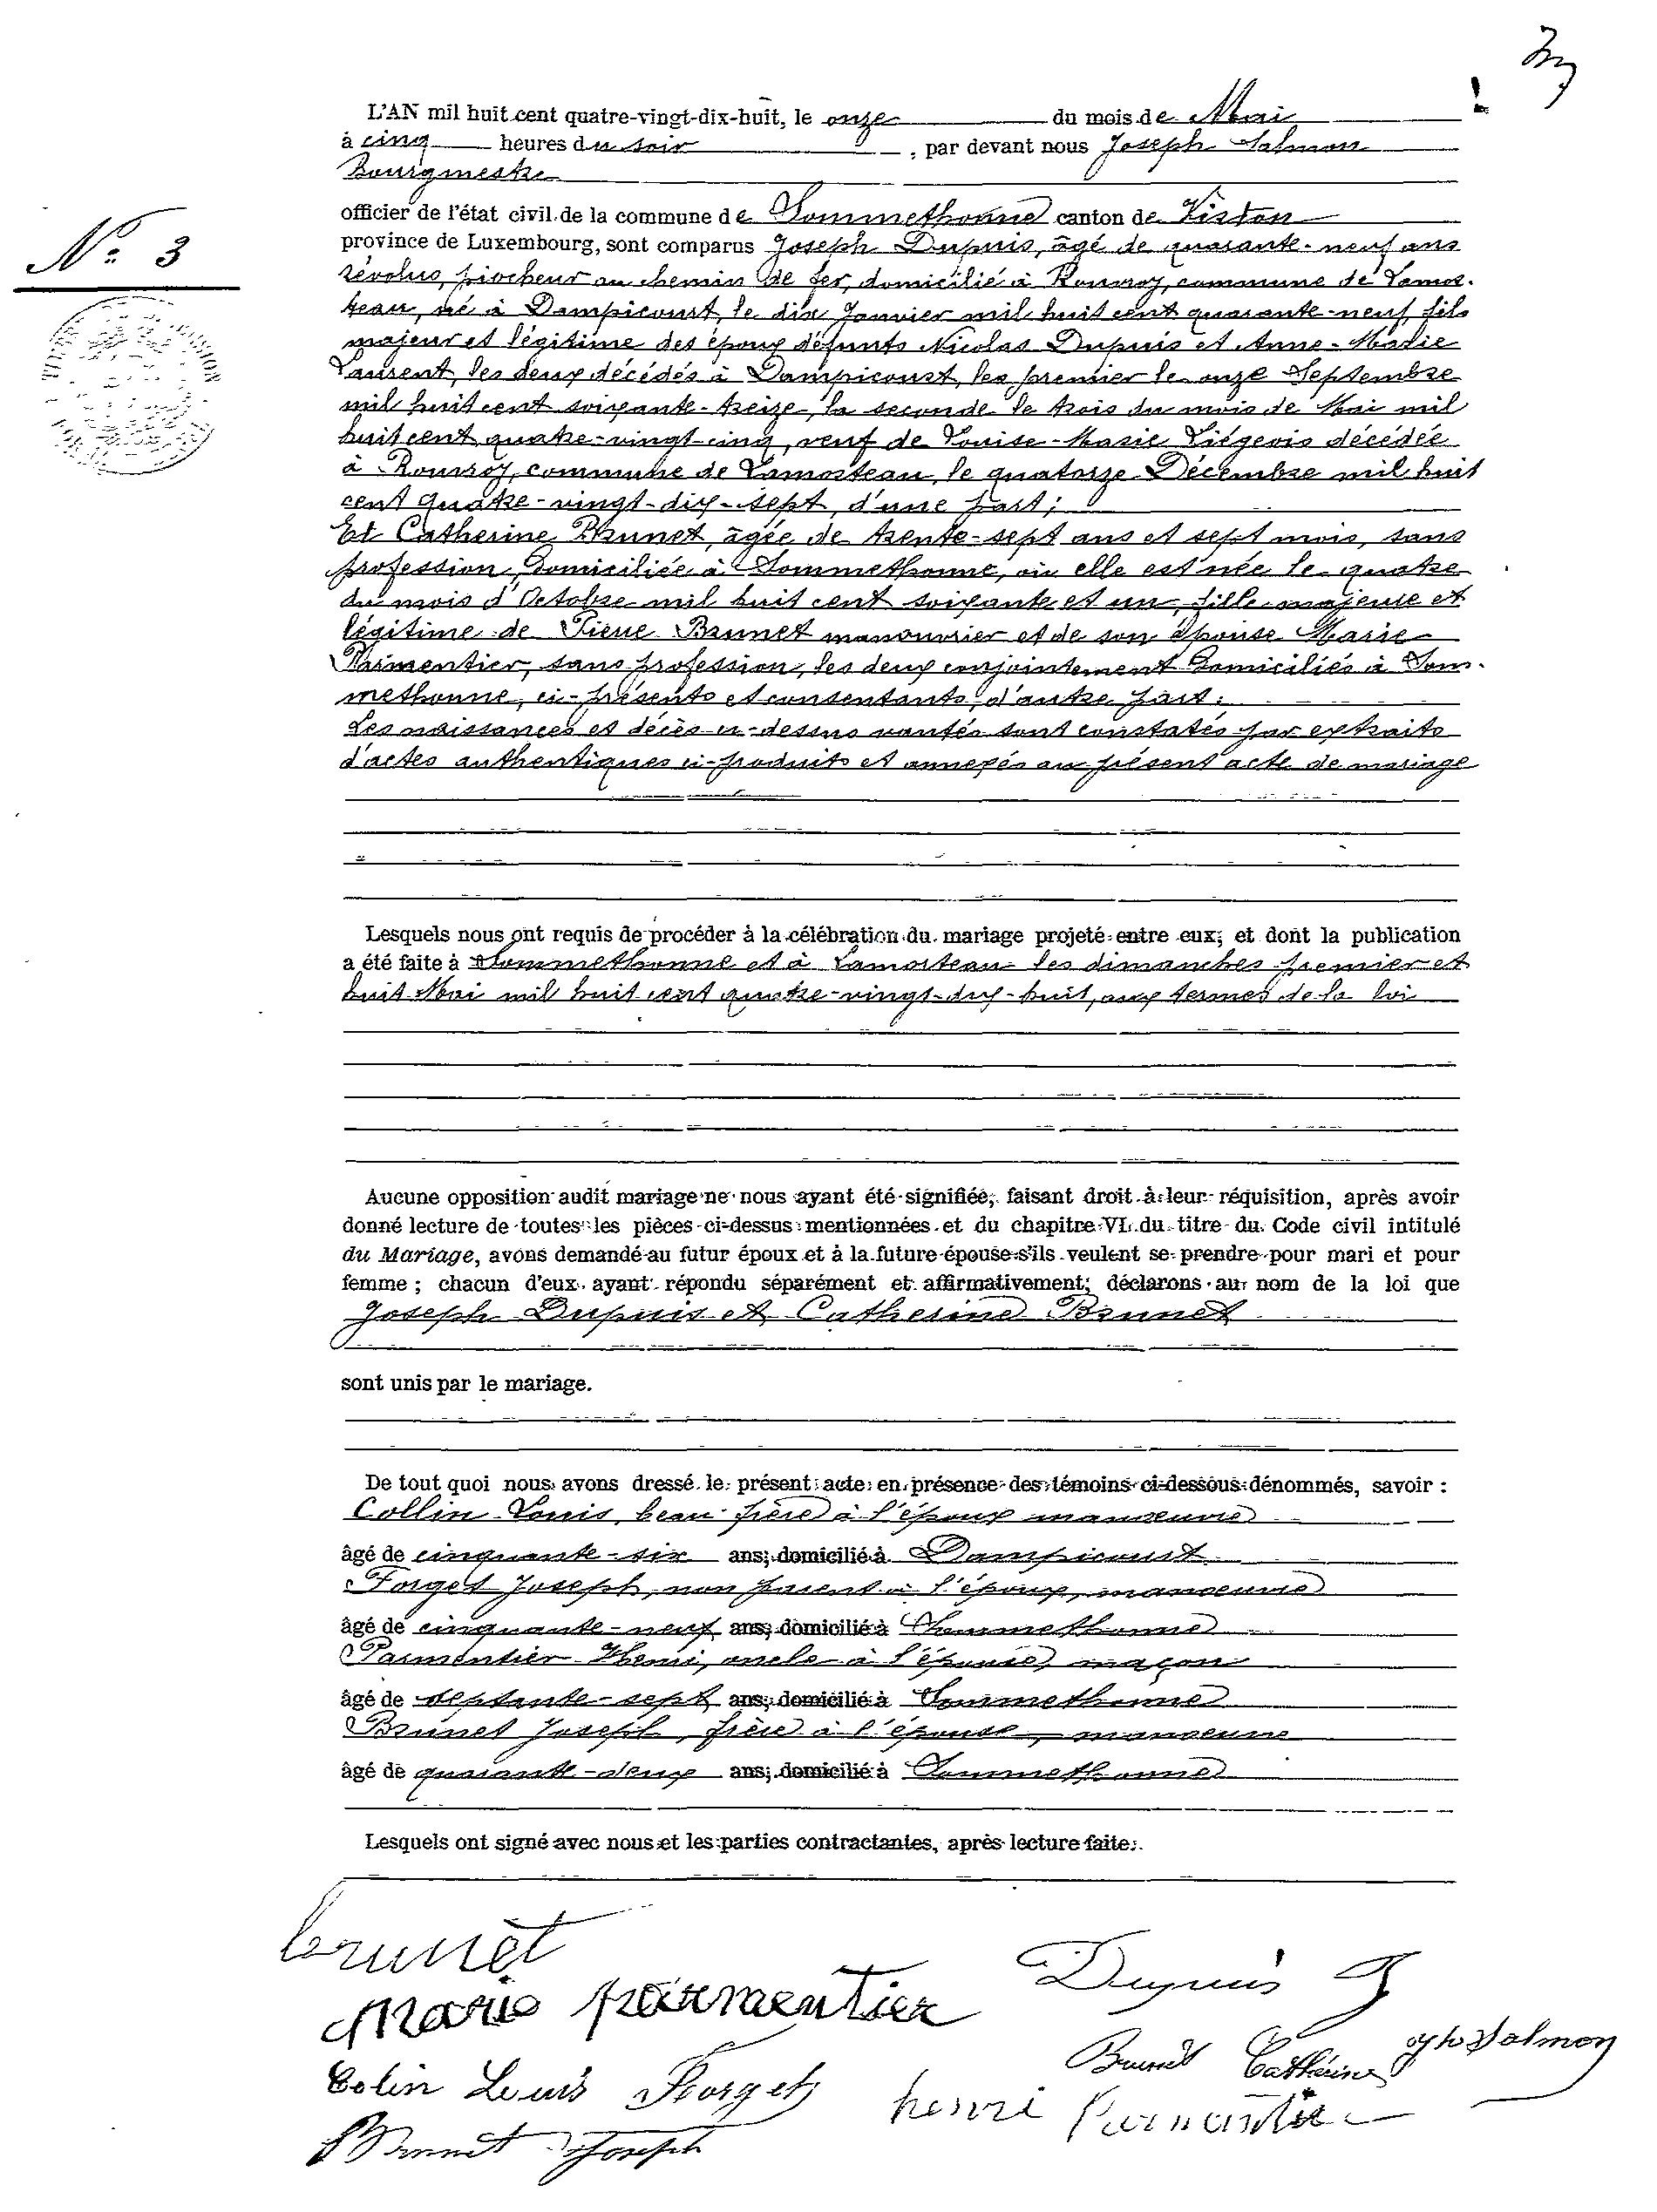 L'AN mil huit cent quatre-vingt-dix-huit, le onze du mois de Mai
à cinq heures du soir, par devant nous Joseph Salmon
Bourgmestre
officier de l'état civil de la commune de Sommethonne canton de Virton
N° 3
province de Luxembourg, sont comparus Joseph Dupuis, âgé de quarante-neuf ans
révolus, piocheur au chemin de fer, domicilié à Rouvroy, commune de Lamor-
teau, né à Dampicourt, le dix Janvier mil huit cent quarante-neuf, fils
majeur et légitime des époux défunts Nicolas Dupuis et Anne-Marie
Laurent, les deux décédés à Dampicourt, les premier le onze Septembre
mil huit cent soixante-treize, la seconde le trois du mois de Mai mil
huit cent quatre-vingt-cinq, veuf de Louise-Marie Liégeois décédée
à Rouvroy, commune de Lamorteau, le quatorze Décembre mil huit
cent quatre-vingt-dix-sept, d'une part;
Et Catherine Brunet, âgée de trente-sept ans et sept mois, sans
profession, domiciliée à Sommethonne, où elle est née le quatre
du mois d'Octobre mil huit cent soixante et un, fille majeure et
légitime de Pierre Brunet manouvrier et de son épouse Marie
Parmentier, sans profession, les deux conjointement domiciliés à Som-
methonne, ci-présents et consentants, d'autre part;
Les naissances et décès ci-dessus vantés sont constatés par extraits
d'actes authentiques ci-produits et annexés au présent acte de mariage
Lesquels nous ont requis de procéder à la célébration du mariage projeté entre eux, et dont la publication
a été faite à Sommethonne et à Lamorteau les dimanches premier et
huit Mai mil huit cent quatre-vingt-dix-huit, aux termes de la loi
Aucune opposition audit mariage ne nous ayant été signifiée, faisant droit à leur réquisition, après avoir
donné lecture de toutes les pièces ci-dessus mentionnées et du chapitre VI du titre du Code civil intitulé
du Mariage, avons demandé au futur époux et à la future épouse s'ils veulent se prendre pour mari et pour
femme ; chacun d'eux ayant répondu séparément et affirmativement, déclarons au nom de la loi que
Joseph Dupuis et Catherine Brunet
sont unis par le mariage.
De tout quoi nous avons dressé le présent acte en présence des témoins ci-dessous dénommés, savoir :
Collin Louis, beau-frère à l'époux manœuvre
âgé de cinquante-six ans, domicilié à Dampicourt
Forget Joseph, non parent à l'époux, manœuvre
âgé de cinquante-neuf ans, domicilié à Sommethonne
Parmentier Henri, oncle à l'épouse, maçon
âgé de septante-sept ans, domicilié à Sommethonne
Brunet Joseph, frère à l'épouse, manœuvre
âgé de quarante-deux ans, domicilié à Sommethonne
Lesquels ont signé avec nous et les parties contractantes, après lecture faite.
brunet
Dupuis J
Marie parmentier
Brunet Catherine Salmon
Colin Louis Forget
henri Parmentier
Brunet Joseph